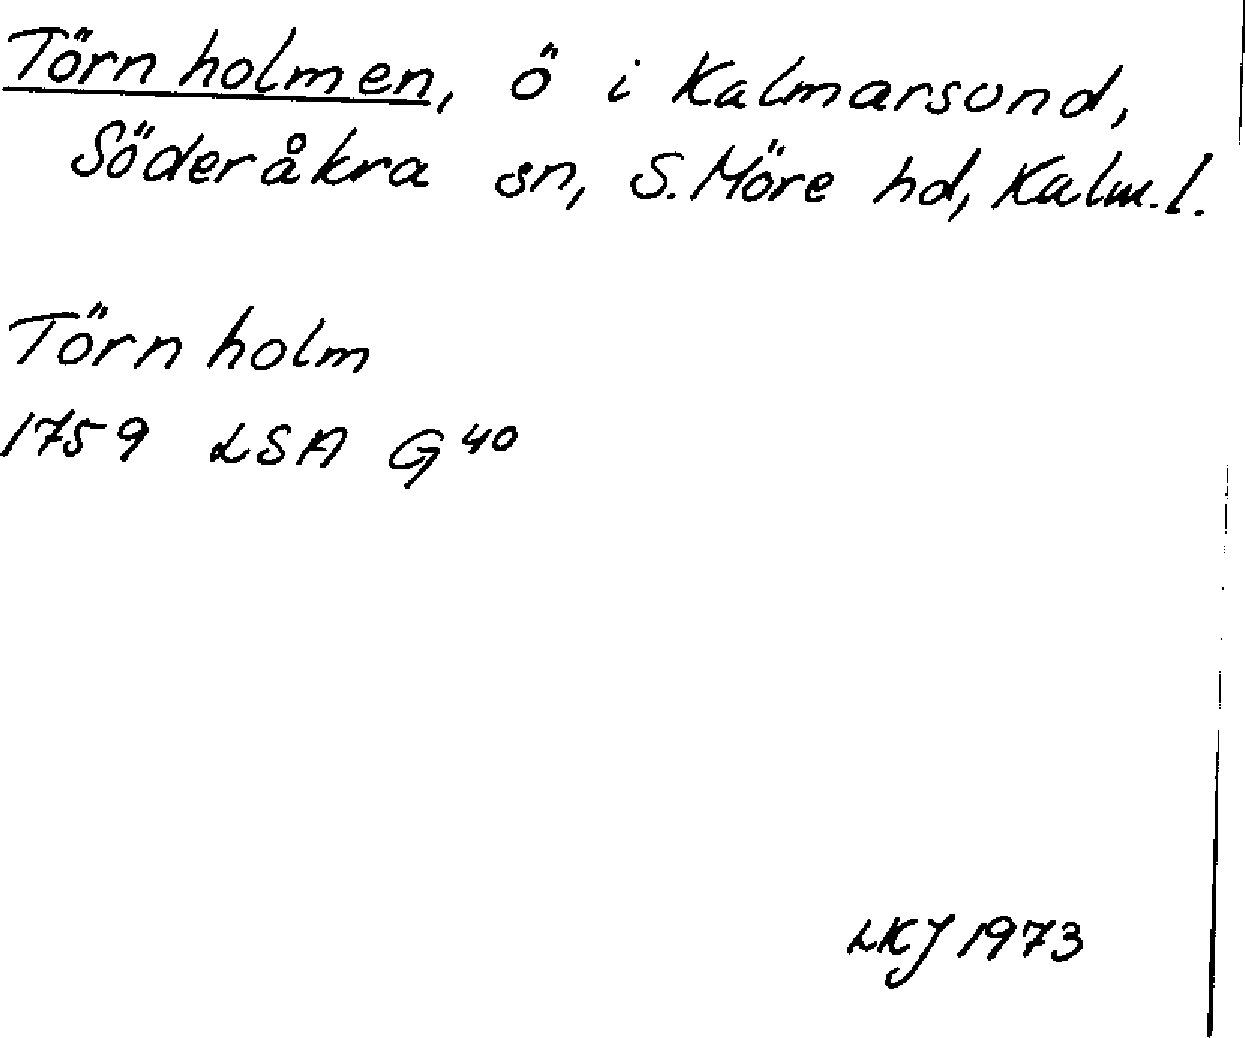 Törnholmen, ö i Kalmarsund,
Söderåkra sn, S. Möre hd, Kalm. l.
Törnholm
1759 LSA G 40
LKJ 1973